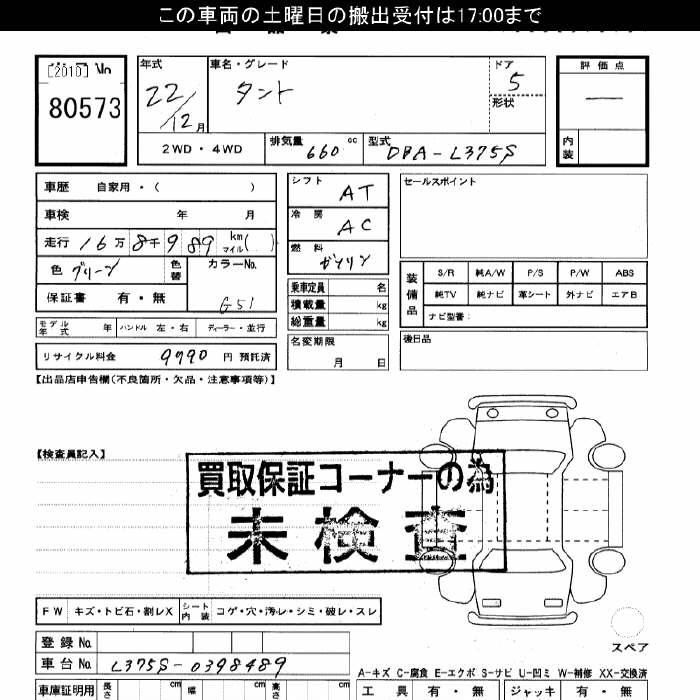 この車両の土曜日の搬出受付は17:00まで
[2010] No
80573
年式
22/12月
車名・グレード
タント
ドア
5
形状
評価点
―
内装
2WD・4WD
排気量 660 cc
型式 DBA-L375S
車歴 自家用・( )
車検 年 月
走行 16万8千989 km マイル( )
色 グリーン
色替
カラーNo. G51
保証書 有・無
モデル年式 年 ハンドル 左・右 ディーラー・並行
リサイクル料金 9790 円 預託済
シフト AT
冷房 AC
燃料 ガソリン
乗車定員 名
積載量 kg
総重量 kg
名変期限
月 日
セールスポイント
装備品
S/R 純A/W P/S P/W ABS
純TV 純ナビ 革シート 外ナビ エアB
ナビ型番:
後日品
【出品店申告欄(不良箇所・欠品・注意事項等)】
【検査員記入】
買取保証コーナーの為
未検査
FW キズ・トビ石・割レX シート内装 コゲ・穴・汚レ・シミ・破レ・スレ
スペア
登録No.
車台No. L375S-0398489
A-キズ C-腐食 E-エクボ S-サビ U-凹ミ W-補修 XX-交換済
車庫証明用 長さ cm 幅 cm 高さ cm
工具 有・無 ジャッキ 有・無